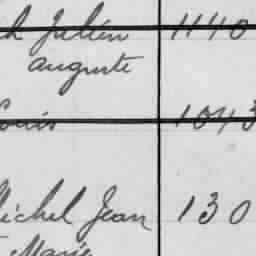 Julien 1140
auguste
Louis 1043
Michel Jean 130
Marie